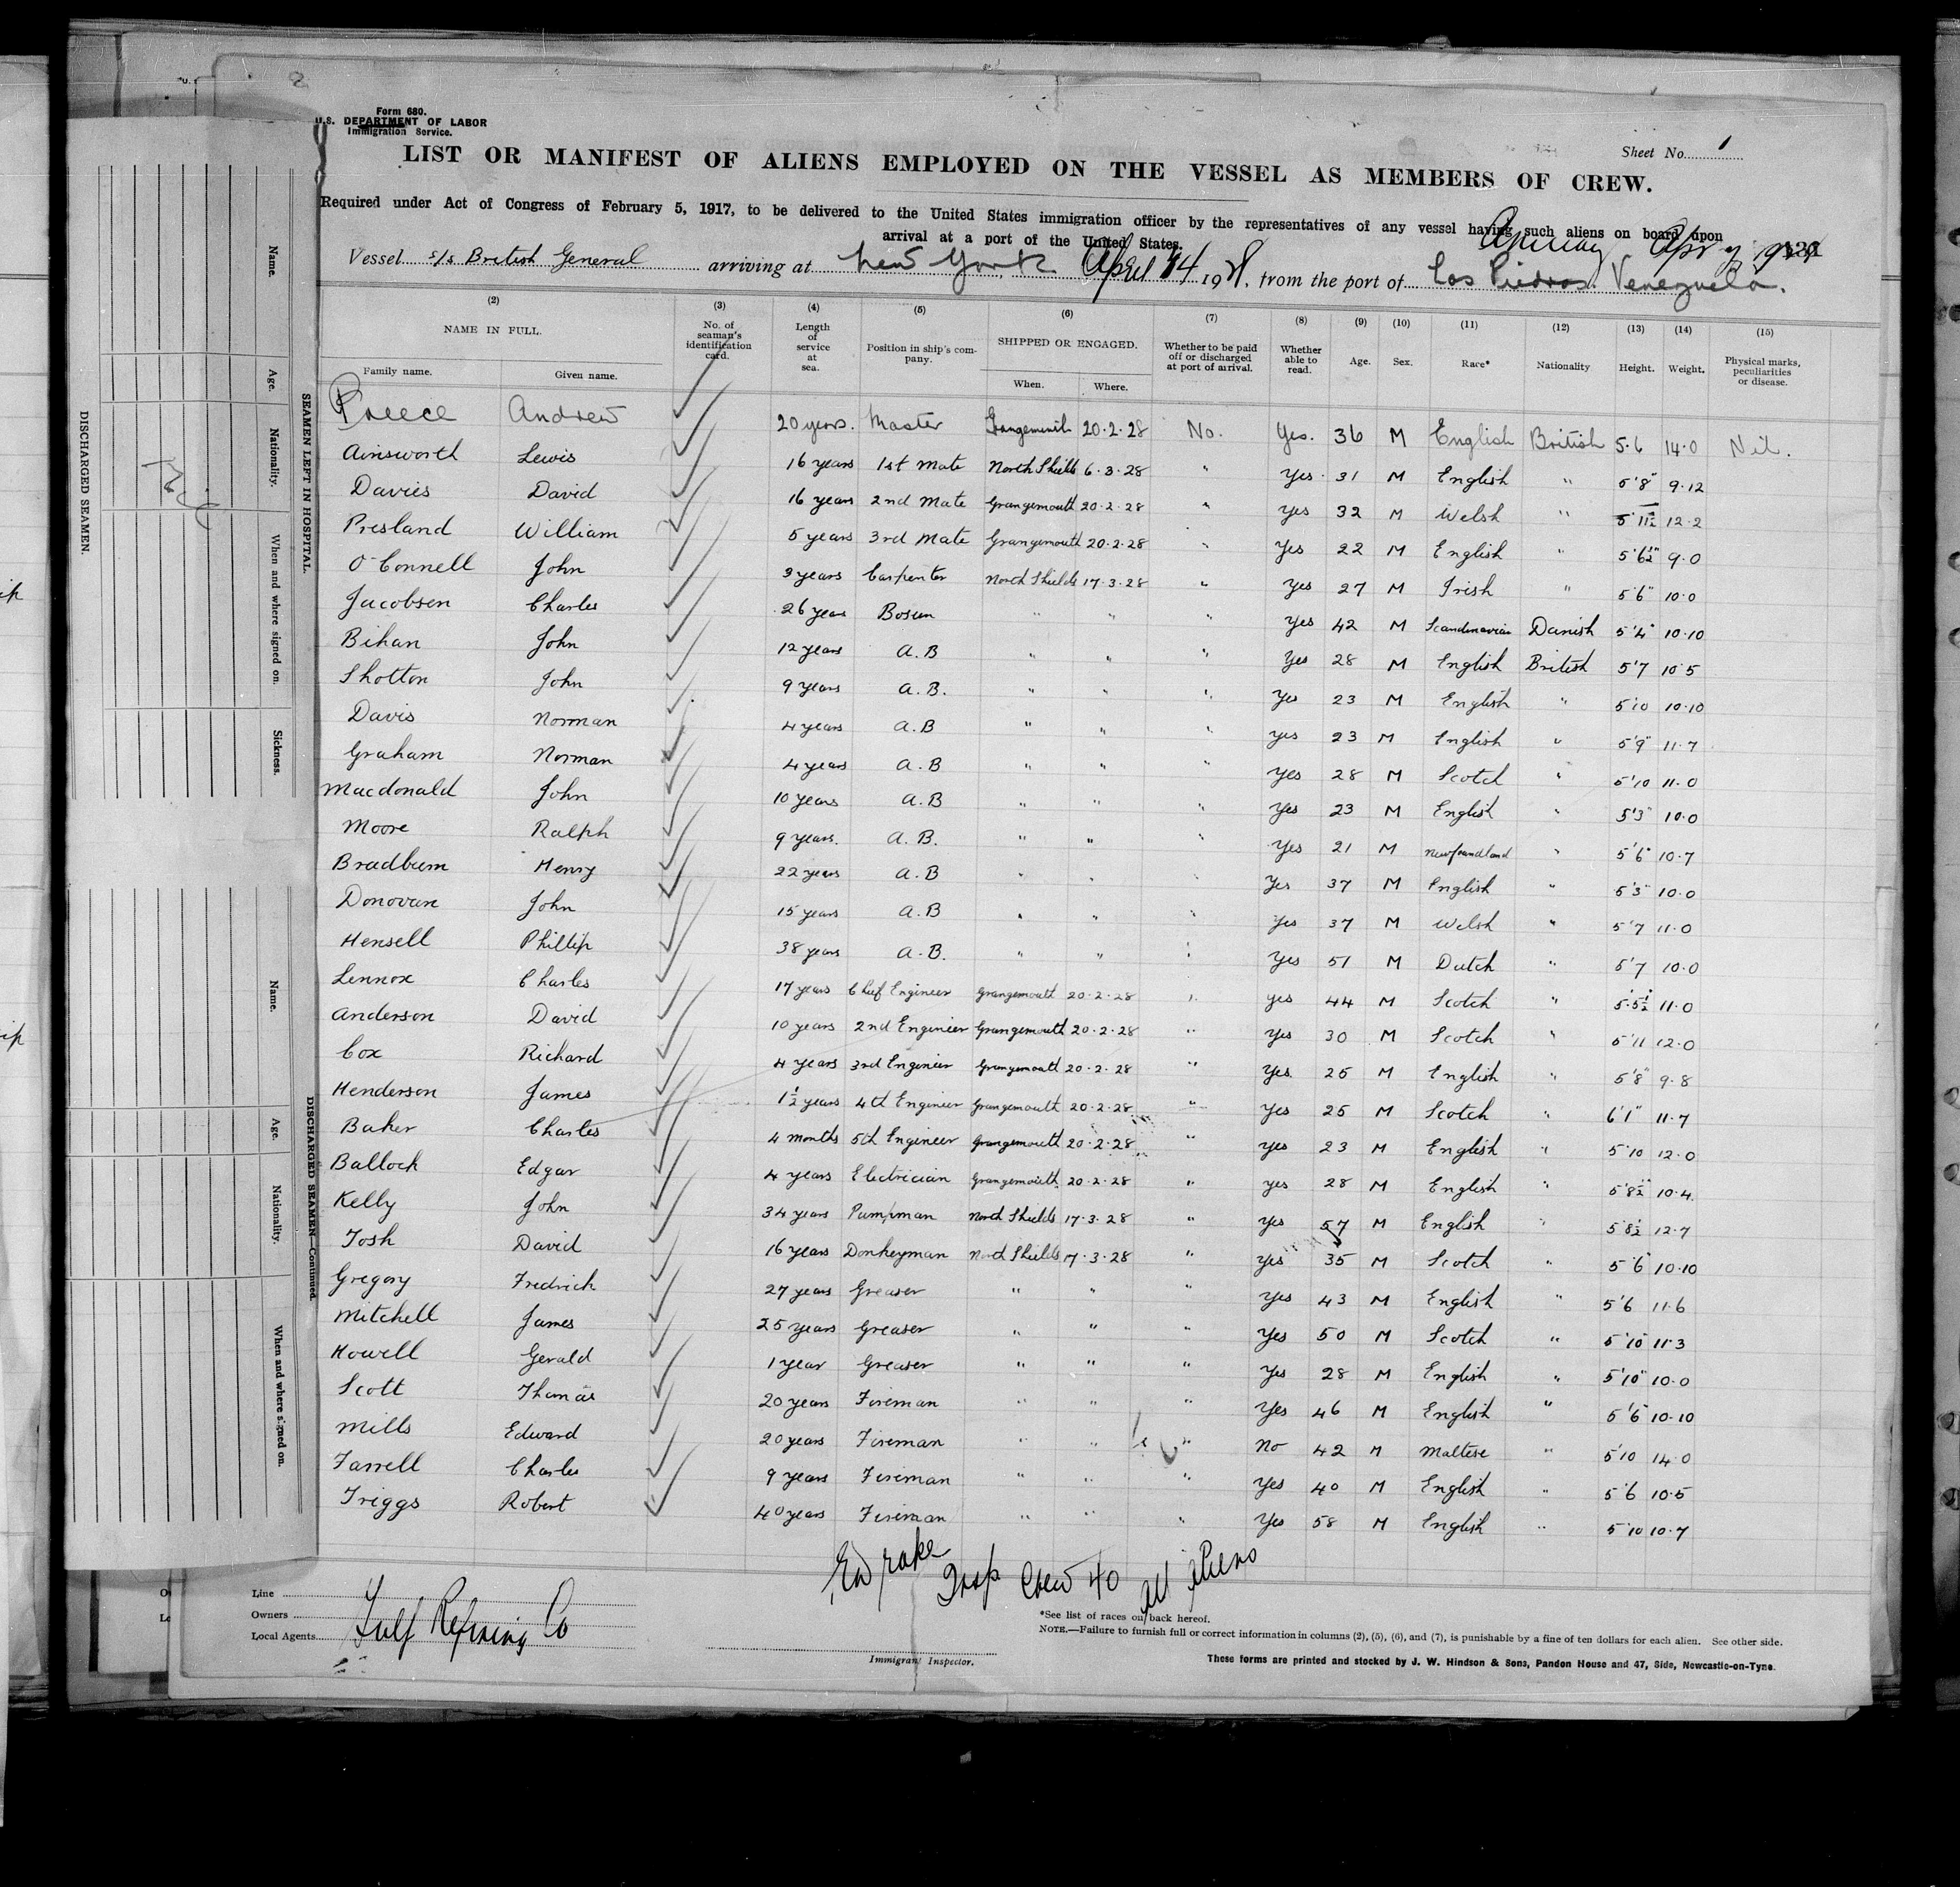 Form 680.
U.S. DEPARTMENT OF LABOR
Immigration Service.
Sheet No. 1
LIST OR MANIFEST OF ALIENS EMPLOYED ON THE VESSEL AS MEMBERS OF CREW.
Required under Act of Congress of February 5, 1917, to be delivered to the United States immigration officer by the representatives of any vessel having such aliens on board upon
arrival at a port of the United States.
Vessel s/s British General arriving at New York April 14 1928, from the port of Las Piedras. Venezuela.
(2) (3) (4) (5) (6) (7) (8) (9) (10) (11) (12) (13) (14) (15)
NAME IN FULL. No. of seaman's identification card. Length of service at sea. Position in ship's company. SHIPPED OR ENGAGED. Whether to be paid off or discharged at port of arrival. Whether able to read. Age. Sex. Race* Nationality Height. Weight. Physical marks, peculiarities or disease.
Family name. Given name. When. Where.
Preece Andrew 20 years. Master Grangemouth 20·2·28 No. Yes. 36 M English British 5·6 14·0 Nil.
Ainsworth Lewis 16 years 1st Mate North Shields 6·3·28 " Yes 31 M English " 5'8" 9·12
Davies David 16 years 2nd Mate Grangemouth 20·2·28 " Yes 32 M Welsh " 5'11½ 12·2
Presland William 5 years 3rd Mate Grangemouth 20·2·28 " Yes 22 M English " 5'6½" 9·0
O'Connell John 3 years Carpenter North Shields 17·3·28 " Yes 27 M Irish " 5'6" 10·0
Jacobsen Charles 26 years Bosun " " " Yes 42 M Scandinavian Danish 5'4" 10·10
Bihan John 12 years A.B " " " Yes 28 M English British 5'7 10·5
Shotton John 9 years A.B. " " " Yes 23 M English " 5'10 10·10
Davis Norman 4 years A.B " " " Yes 23 M English " 5'9" 11·7
Graham Norman 4 years A.B " " " Yes 28 M Scotch " 5'10 11·0
Macdonald John 10 years A.B " " " Yes 23 M English " 5'3" 10·0
Moore Ralph 9 years. A.B. " " " Yes 21 M Newfoundland " 5'6" 10·7
Bradburn Henry 22 years A.B " " Yes 37 M English " 5'3" 10·0
Donovan John 15 years A.B " " " Yes 37 M Welsh " 5'7 11·0
Hensell Phillip 38 years A.B. " " " Yes 51 M Dutch " 5'7 10·0
Lennox Charles 17 years Chief Engineer Grangemouth 20·2·28 " Yes 44 M Scotch " 5·5½ 11·0
Anderson David 10 years 2nd Engineer Grangemouth 20·2·28 " Yes 30 M Scotch " 5'11 12·0
Cox Richard 4 years 3rd Engineer Grangemouth 20·2·28 " Yes 25 M English " 5'8" 9·8
Henderson James 1½ years 4th Engineer Grangemouth 20·2·28 " Yes 25 M Scotch " 6'1" 11·7
Baker Charles 4 months 5th Engineer Grangemouth 20·2·28 " Yes 23 M English " 5'10 12·0
Balloch Edgar 4 years Electrician Grangemouth 20·2·28 " Yes 28 M English " 5'8½" 10·4
Kelly John 34 years Pumpman North Shields 17·3·28 " Yes 57 M English " 5'8½ 12·7
Tosh David 16 years Donkeyman North Shields 17·3·28 " Yes 35 M Scotch " 5'6" 10·10
Gregory Fredrich 27 years Greaser " " " Yes 43 M English " 5'6 11·6
Mitchell James 25 years Greaser " " " Yes 50 M Scotch " 5'10" 11·3
Howell Gerald 1 year Greaser " " " Yes 28 M English " 5'10" 10·0
Scott Thomas 20 years Fireman " " " Yes 46 M English " 5'6" 10·10
Mills Edward 20 years Fireman " " " No 42 M Maltese " 5'10 14·0
Farrell Charles 9 years Fireman " " " Yes 40 M English " 5'6 10·5
Triggs Robert 40 years Fireman " " " Yes 58 M English " 5'10 10·7
Crew 40 all aliens
Line
Owners
Local Agents Gulf Refining Co
Immigrant Inspector.
*See list of races on back hereof.
NOTE.—Failure to furnish full or correct information in columns (2), (5), (6), and (7), is punishable by a fine of ten dollars for each alien. See other side.
These forms are printed and stocked by J. W. Hindson & Sons, Pandon House and 47, Side, Newcastle-on-Tyne.
DISCHARGED SEAMEN.
SEAMEN LEFT IN HOSPITAL.
Name.
Age.
Nationality.
When and where signed on.
Sickness.
DISCHARGED SEAMEN—Continued.
Name.
Age.
Nationality.
When and where signed on.